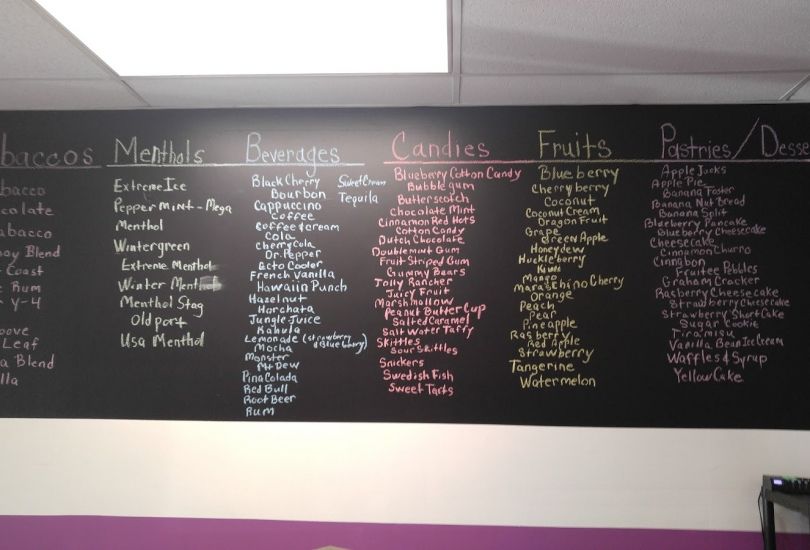 baccos
bacco
colate
abacco
noy Blend
- Coast
Rum
Y-4
oove
Leaf
a Blend
lla
Menthols
Extreme Ice
PepperMint-Mega
Menthol
Wintergreen
Extreme Menthol
Winter Menthol
Menthol Stag
Old port
Usa Menthol
Beverages
Black Cherry
Bourbon
Cappuccino
Coffee
Coffee & cream
Cola
Cherry cola
Dr. Pepper
Ecto Cooler
French Vanilla
Hawaiin Punch
Hazelnut
Horchata
Jungle Juice
Kahula
Lemonade (strawberry & Blueberry)
Mocha
Monster
Mt Dew
Pina Colada
Red Bull
Root Beer
Rum
Sweet Cream
Tequila
Candies
Blueberry Cotton Candy
Bubble gum
Butterscotch
Chocolate Mint
Cinnamon Red Hots
Cotton Candy
Dutch Chocolate
Doublemint Gum
Fruit Striped Gum
Gummy Bears
Jolly Rancher
Juicy Fruit
Marshmallow
Peanut Butter Cup
Salted Caramel
Salt Water Taffy
Skittles
Sour Skittles
Snickers
Swedish Fish
Sweet Tarts
Fruits
Blueberry
Cherryberry
Coconut
Coconut Cream
Dragon Fruit
Grape
Green Apple
Honeydew
Huckleberry
Kiwi
Mango
Maraschino Cherry
Orange
Peach
Pear
Pineapple
Raspberry
Red Apple
Strawberry
Tangerine
Watermelon
Pastries/Desse
Apple Jacks
Apple Pie
Banana Foster
Banana Nut Bread
Banana Split
Blueberry Pancake
Blueberry Cheesecake
Cheesecake
Cinnamon Churro
Cinnabon
Fruitee Pebbles
Graham Cracker
Raspberry Cheesecake
Strawberry Cheesecake
Strawberry ShortCake
Sugar Cookie
Tiramisu
Vanilla Bean Ice Cream
Waffles & Syrup
Yellow Cake